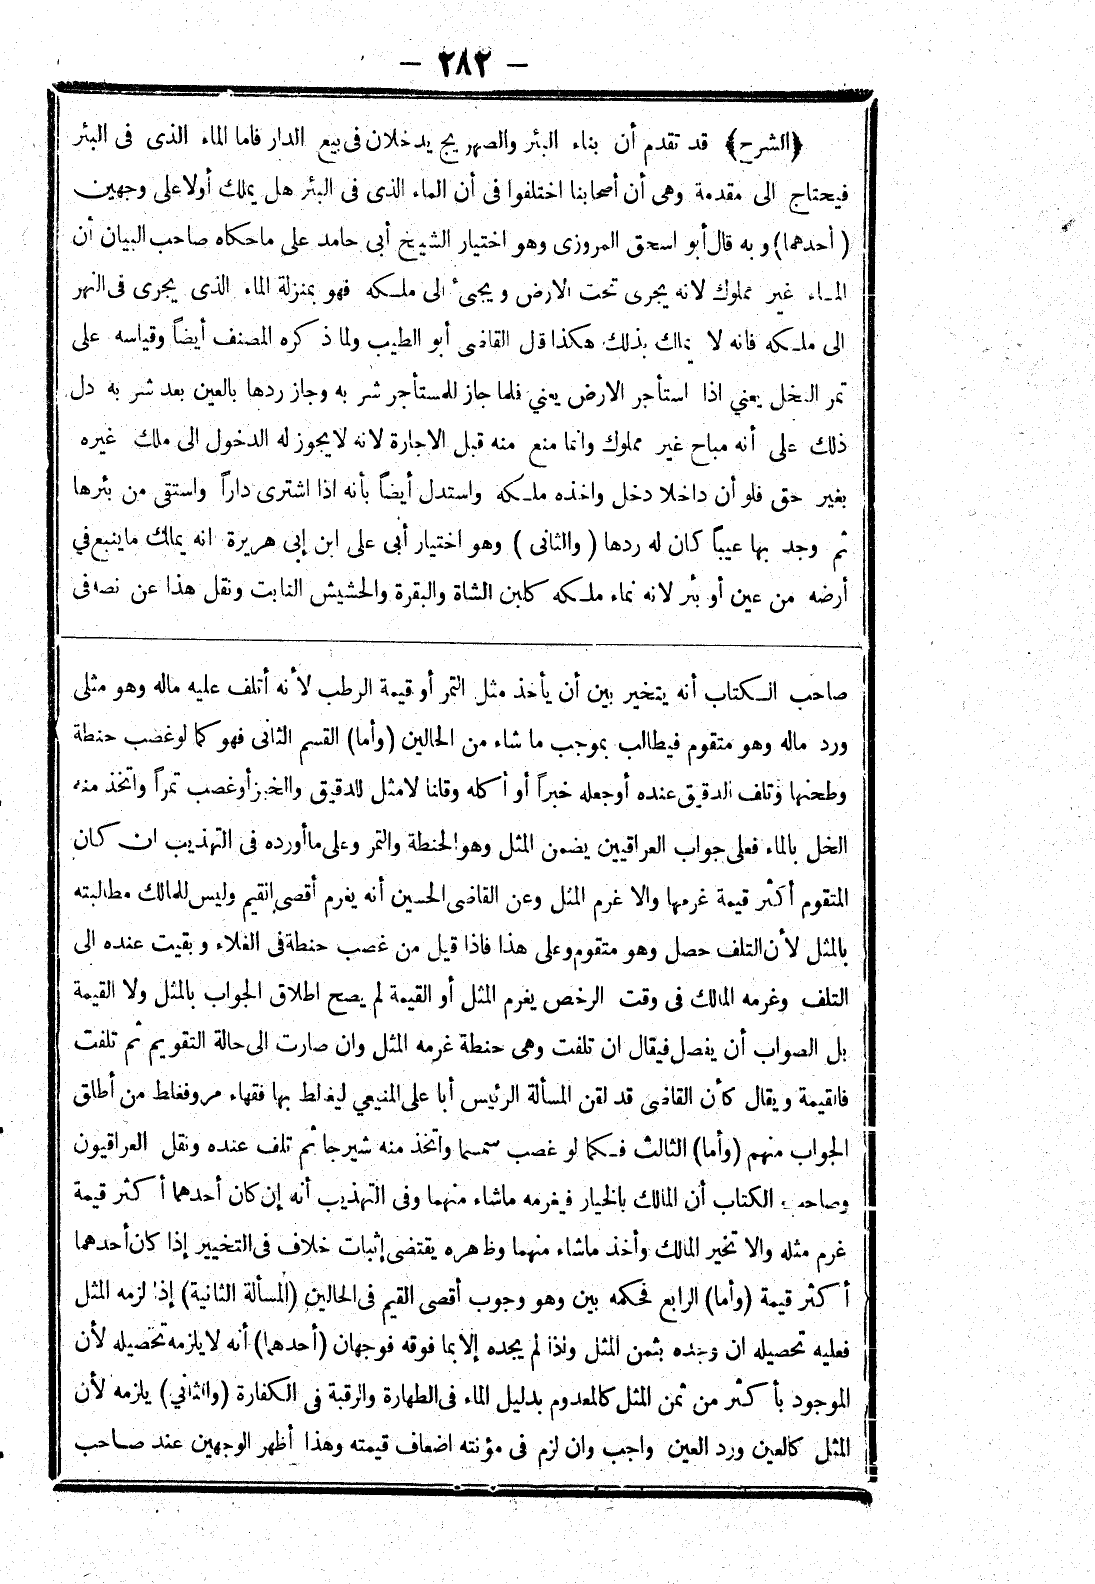 — ٢٨٢ —
﴿الشرح﴾ قد تقدم أن بناء البئر والصهريج يدخلان فى بيع الدار فاما الماء الذى فى البئر
فيحتاج الى مقدمة وهى أن أصحابنا اختلفوا فى أن الماء الذى فى البئر هل يملك أولا على وجهين
( أحدهما) وبه قال أبو اسحق المروزى وهو اختيار الشيخ أبى حامد على ماحكاه صاحب البيان أن
المـاء غير مملوك لانه يجرى تحت الارض ويجىء الى ملـكه فهو بمنزلة الماء الذى يجرى فى النهر
الى ملـكه فانه لا يملك بذلك هكذا قال القاضى أبو الطيب ولما ذكره المصنف أيضاً وقياسه على
تمر النخل يعني اذا استأجر الارض يعني فلما جاز للمستأجر شربه وجاز ردها بالعين بعد شربه دل
ذلك على أنه مباح غير مملوك وانما منع منه قبل الاجارة لانه لايجوز له الدخول الى ملك غيره
بغير حق فلو أن داخلا دخل واخذه ملـكه واستدل أيضاً بأنه اذا اشترى داراً واستقى من بئرها
ثم وجد بها عيباً كان له ردها ( والثانى ) وهو اختيار أبى على ابن إبى هريرة انه يملك ماينبع في
أرضه من عين أو بئر لانه نماء ملـكه كلبن الشاة والبقرة والحشيش النابت ونقل هذا عن نصه فى
صاحب الـكتاب أنه يتخير بين أن يأخذ مثل التمر أو قيمة الرطب لأنه أتلف عليه ماله وهو مثلى
ورد ماله وهو متقوم فيطالب بموجب ما شاء من الحالين (وأما) القسم الثانى فهو كما لو غصب حنطة
وطحنها وتلف الدقيق عنده أو جعله خبراً أو أكله وقلنا لا مثل للدقيق والخبز أوغصب تمراً واتخذ منه
الخل بالماء فعلى جواب العراقيين يضمن المثل وهو الحنطة والتمر وعلى ما أورده فى التهذيب ان كان
المتقوم أكثر قيمة غرمها والا غرم المثل وعن القاضى الحسين أنه يغرم أقصى القيم وليس للمالك مطالبته
بالمثل لأن التلف حصل وهو متقوم وعلى هذا فاذا قيل من غصب حنطة فى الغلاء وبقيت عنده الى
التلف وغرمه المالك فى وقت الرخص يغرم المثل أو القيمة لم يصح اطلاق الجواب بالمثل ولا القيمة
بل الصواب أن يفصل فيقال ان تلفت وهى حنطة غرمه المثل وان صارت الى حالة التقويم ثم تلفت
فالقيمة ويقال كأن القاضى قد لقن المسألة الرئيس أبا على المنيعي ليغلط بها فقهاء مرو فغلط من أطلق
الجواب منهم (وأما) الثالث فـكما لو غصب سمسما واتخذ منه شيرجا ثم تلف عنده ونقل العراقيون
وصاحب الكتاب أن المالك بالخيار فيغرمه ماشاء منهما وفى التهذيب أنه إن كان أحدهما أكثر قيمة
غرم مثله والا تخير المالك وأخذ ماشاء منهما وظاهره يقتضى إثبات خلاف فى التخيير إذا كان أحدهما
أكثر قيمة (وأما) الرابع فحكمه بين وهو وجوب أقصى القيم فى الحالين (المسألة الثانية) إذا لزمه المثل
فعليه تحصيله ان وجده بثمن المثل وإذا لم يجده إلا بما فوقه فوجهان (أحدهما) أنه لا يلزمه تحصيله لأن
الموجود بأكثر من ثمن المثل كالمعدوم بدليل الماء فى الطهارة والرقبة فى الكفارة (والثاني) يلزمه لأن
المثل كالعين ورد العين واجب وان لزم فى مؤنته اضعاف قيمته وهذا أظهر الوجهين عند صـاحب